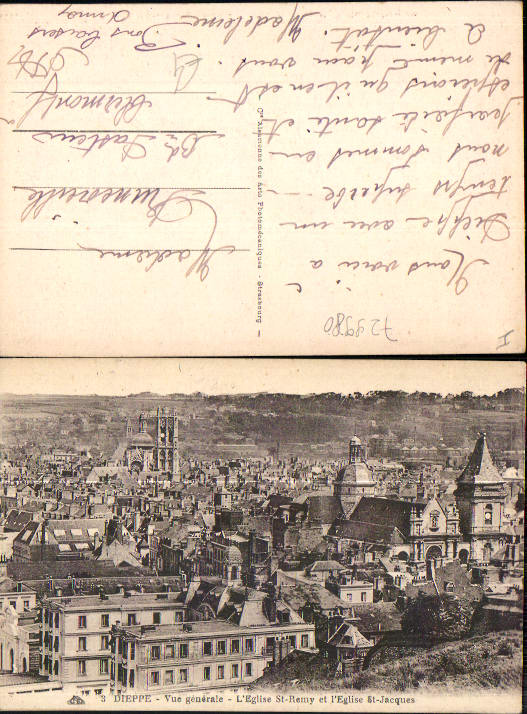 Nous voici à
Dieppe avec un
temps superbe
nous sommes en
parfaite santé et
espérons qu'il en est
de même pour vous.
à bientôt. Madeleine
Bons baisers
Anna
Madame
Bd Pasteur
Cie Alsacienne des Arts Photomécaniques - Strasbourg
729980
I
3 DIEPPE - Vue générale - L'Eglise St-Remy et l'Eglise St-Jacques